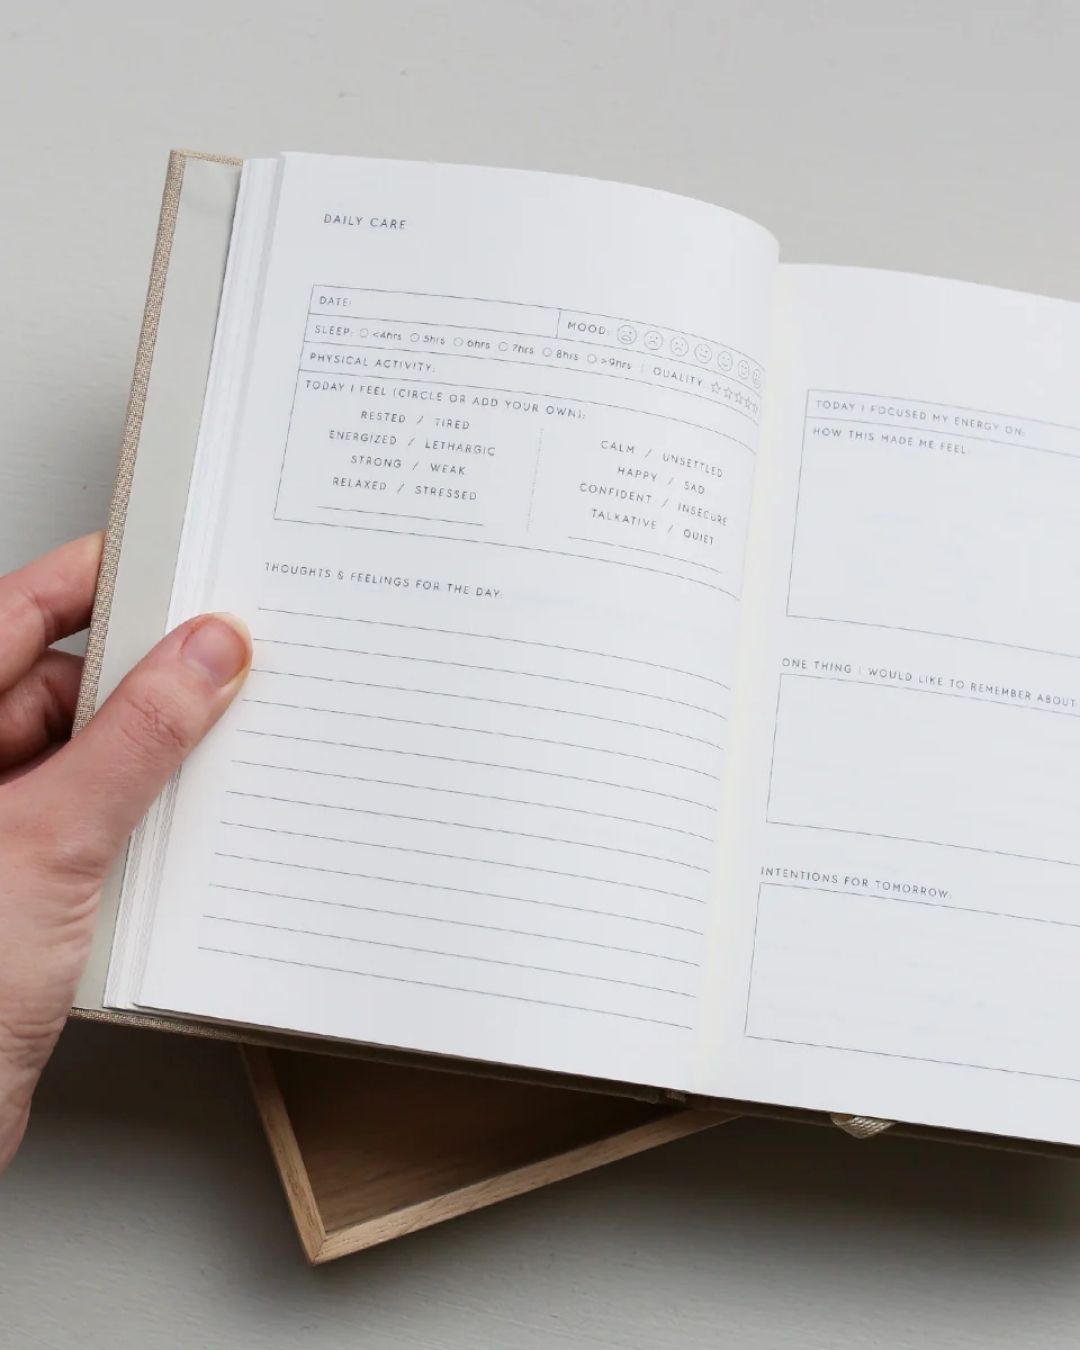 DAILY CARE
DATE:
MOOD:
SLEEP: <4hrs 5hrs 6hrs 7hrs 8hrs >9hrs | QUALITY:
PHYSICAL ACTIVITY:
TODAY I FEEL (CIRCLE OR ADD YOUR OWN):
RESTED / TIRED
ENERGIZED / LETHARGIC
STRONG / WEAK
RELAXED / STRESSED
CALM / UNSETTLED
HAPPY / SAD
CONFIDENT / INSECURE
TALKATIVE / QUIET
THOUGHTS & FEELINGS FOR THE DAY:
TODAY I FOCUSED MY ENERGY ON:
HOW THIS MADE ME FEEL:
ONE THING I WOULD LIKE TO REMEMBER ABOUT
INTENTIONS FOR TOMORROW: